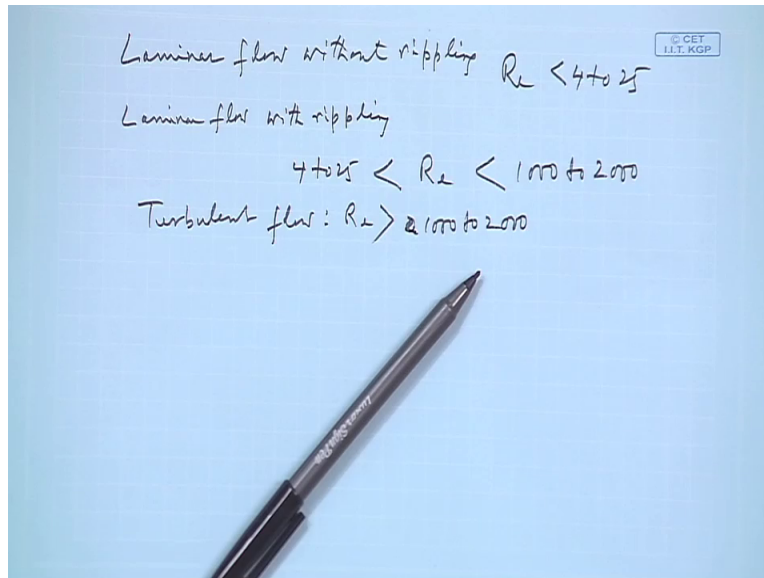 © CET
I.I.T. KGP
Laminar flow without rippling Re < 4 to 25
Laminar flow with rippling
4 to 25 < Re < 1000 to 2000
Turbulent flow : Re > 1000 to 2000